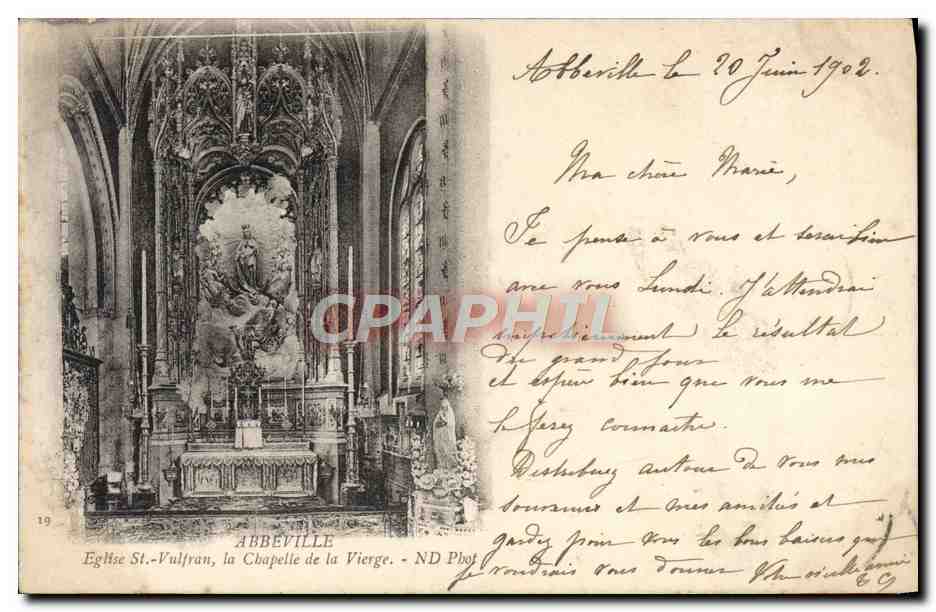 Abbeville le 20 Juin 1902.
Ma chère Marie,
Je pense à vous et serai bien
avec vous Lundi. J'attendrai
impatiemment le résultat
du grand jour
et espère bien que vous me
le ferez connaitre.
Distribuez autour de vous mes
souvenirs et mes amitiés et
gardez pour vous les bons baisers que
je voudrais vous donner Votre vieille amie
CPAPHIL
19
ABBEVILLE
Eglise St.-Vulfran, la Chapelle de la Vierge. - ND Phot